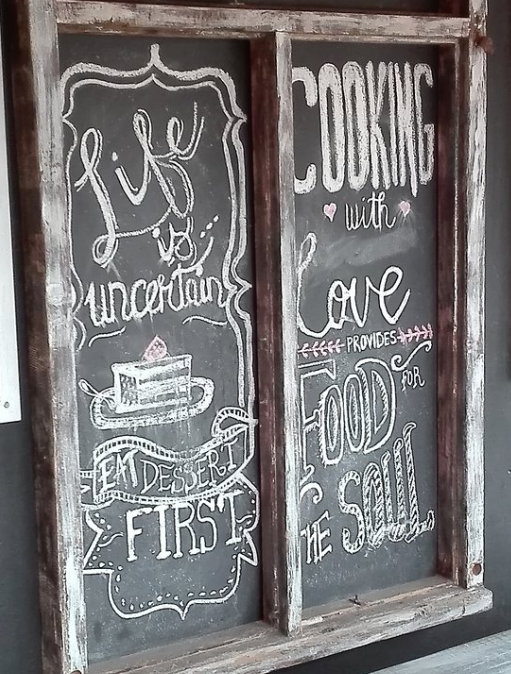 Life
is
uncertain
EAT DESSERT
FIRST
COOKING
with
Love
PROVIDES
FOOD FOR
THE SOUL